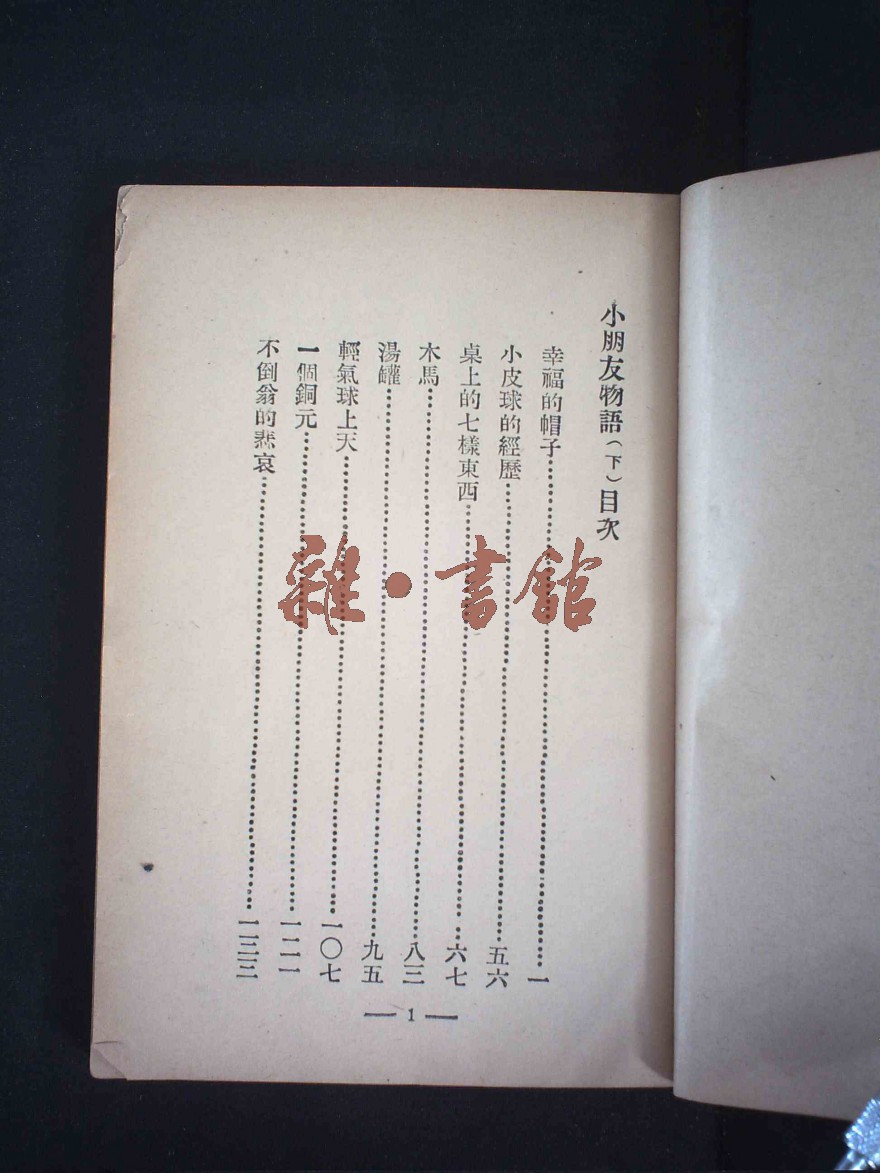 小朋友物語（下）目次
幸福的帽子……一
小皮球的經歷……五六
桌上的七樣東西……六七
木馬……八三
湯罐……九五
輕氣球上天……一〇七
一個銅元……一二一
不倒翁的悲哀……
— 1 —
雜·書館